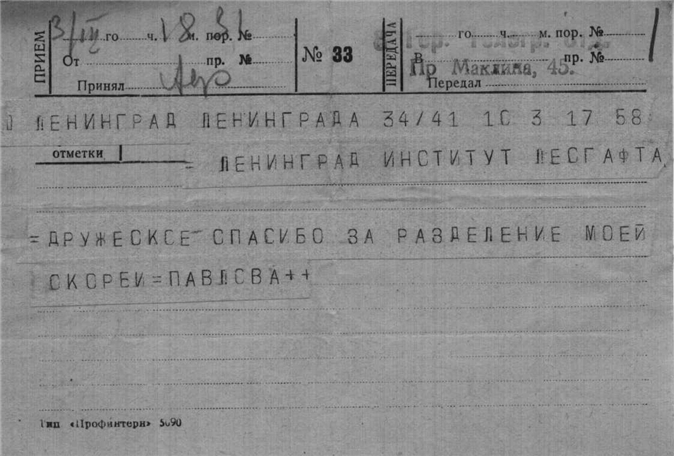 ПРИЕМ 3/III го ч. 18 м. 31 пор. №
От пр. №
Принял
№ 33
ПЕРЕДАЧА го ч. м. пор. №
В пр. №
Пр Маклина, 45.
Передал
ЛЕНИНГРАД ЛЕНИНГРАДА 34/41 1С 3 17 58
отметки
= ЛЕНИНГРАД ИНСТИТУТ ЛЕСГАФТА
=ДРУЖЕСКСЕ СПАСИБО ЗА РАЗДЕЛЕНИЕ МОЕЙ
СКОРБИ=ПАВЛСВА++
Тип «Профинтерн» 5090